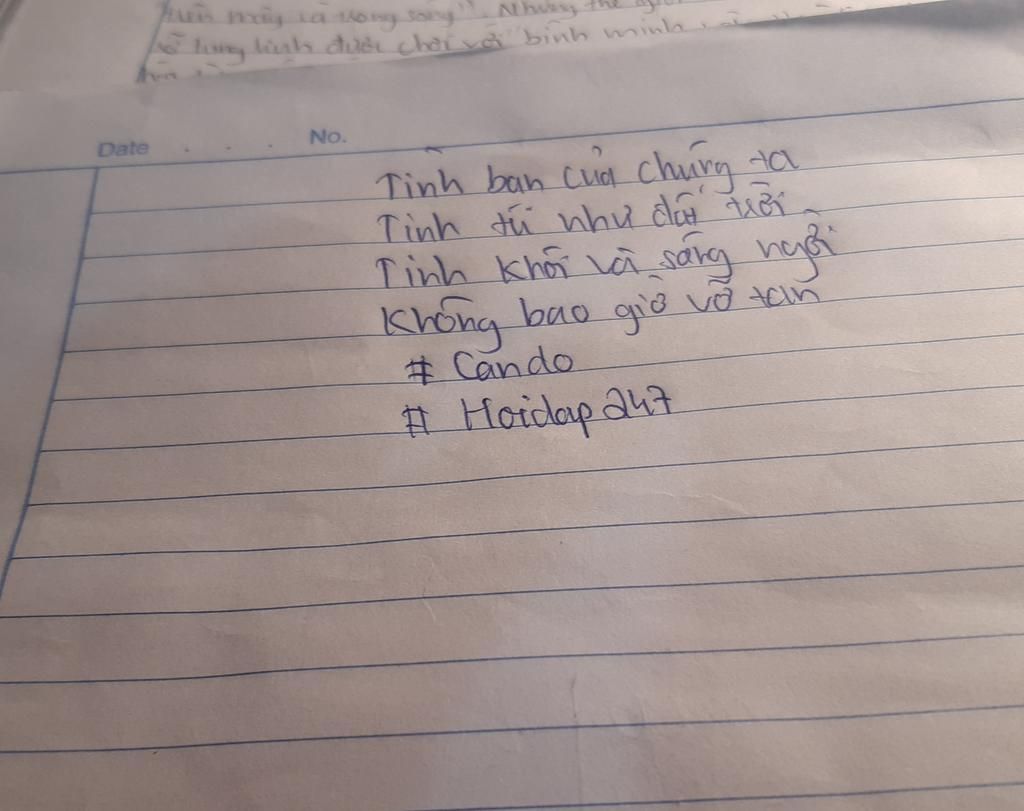 trên mây và trong sóng". Nhưng thế
lung linh được chơi với bình minh
Date . . . . No.
Tình bạn của chúng ta
Tinh tú như đất trời
Tinh khôi và sáng ngời
Không bao giờ vỡ tan
# Cando
# Hoidap247